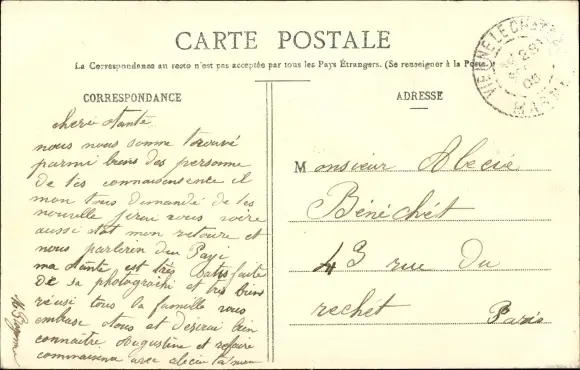 CARTE POSTALE
La Correspondance au recto n'est pas acceptée par tous les Pays Étrangers. (Se renseigner à la Poste)
CORRESPONDANCE
cherie Tante
nous nous somme trouvé
parmi biens des persone
de tes connaissence il
mon tous demandé de tes
nouvelle jirai vous voire
aussi tot mon retoure et
nous parleron du Payi
ma Tante est très satisfaite
de sa photograchi et très bien
réusi tous la famille vous
embrase tous et désirai bien
connaitre Augustine et refaire
connaissence avec alecie
ADRESSE
Monsieur Alecie
Bénéchét
43 rue du
rechet Paris
VIENNE LE CHATEAU
MARNE